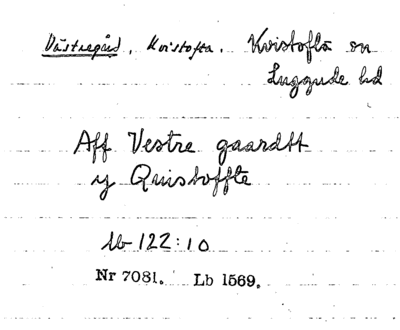 Västregård, Kvistofta. Kvistofta sn
Luggude hd
Aff Vestre gaardtt
y Quistoffte
Lb 122:10
Nr 7081. Lb 1569.